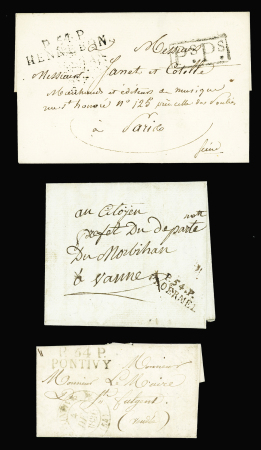 P. 54. P.
HENNEBON
P.P.D.S.
Messieurs
Messieurs Janet et Cotelle
Marchands et éditeurs de musique
rue St honoré n° 125 près celle des Poulies
à Paris
Seine
au Citoyen
prefet Du departe
Du Morbihan
à vanne
P. 54. P.
PLOERMEL
P. 54. P.
PONTIVY
Monsieur
Monsieur Le Maire
De St fulgent
(vendée)